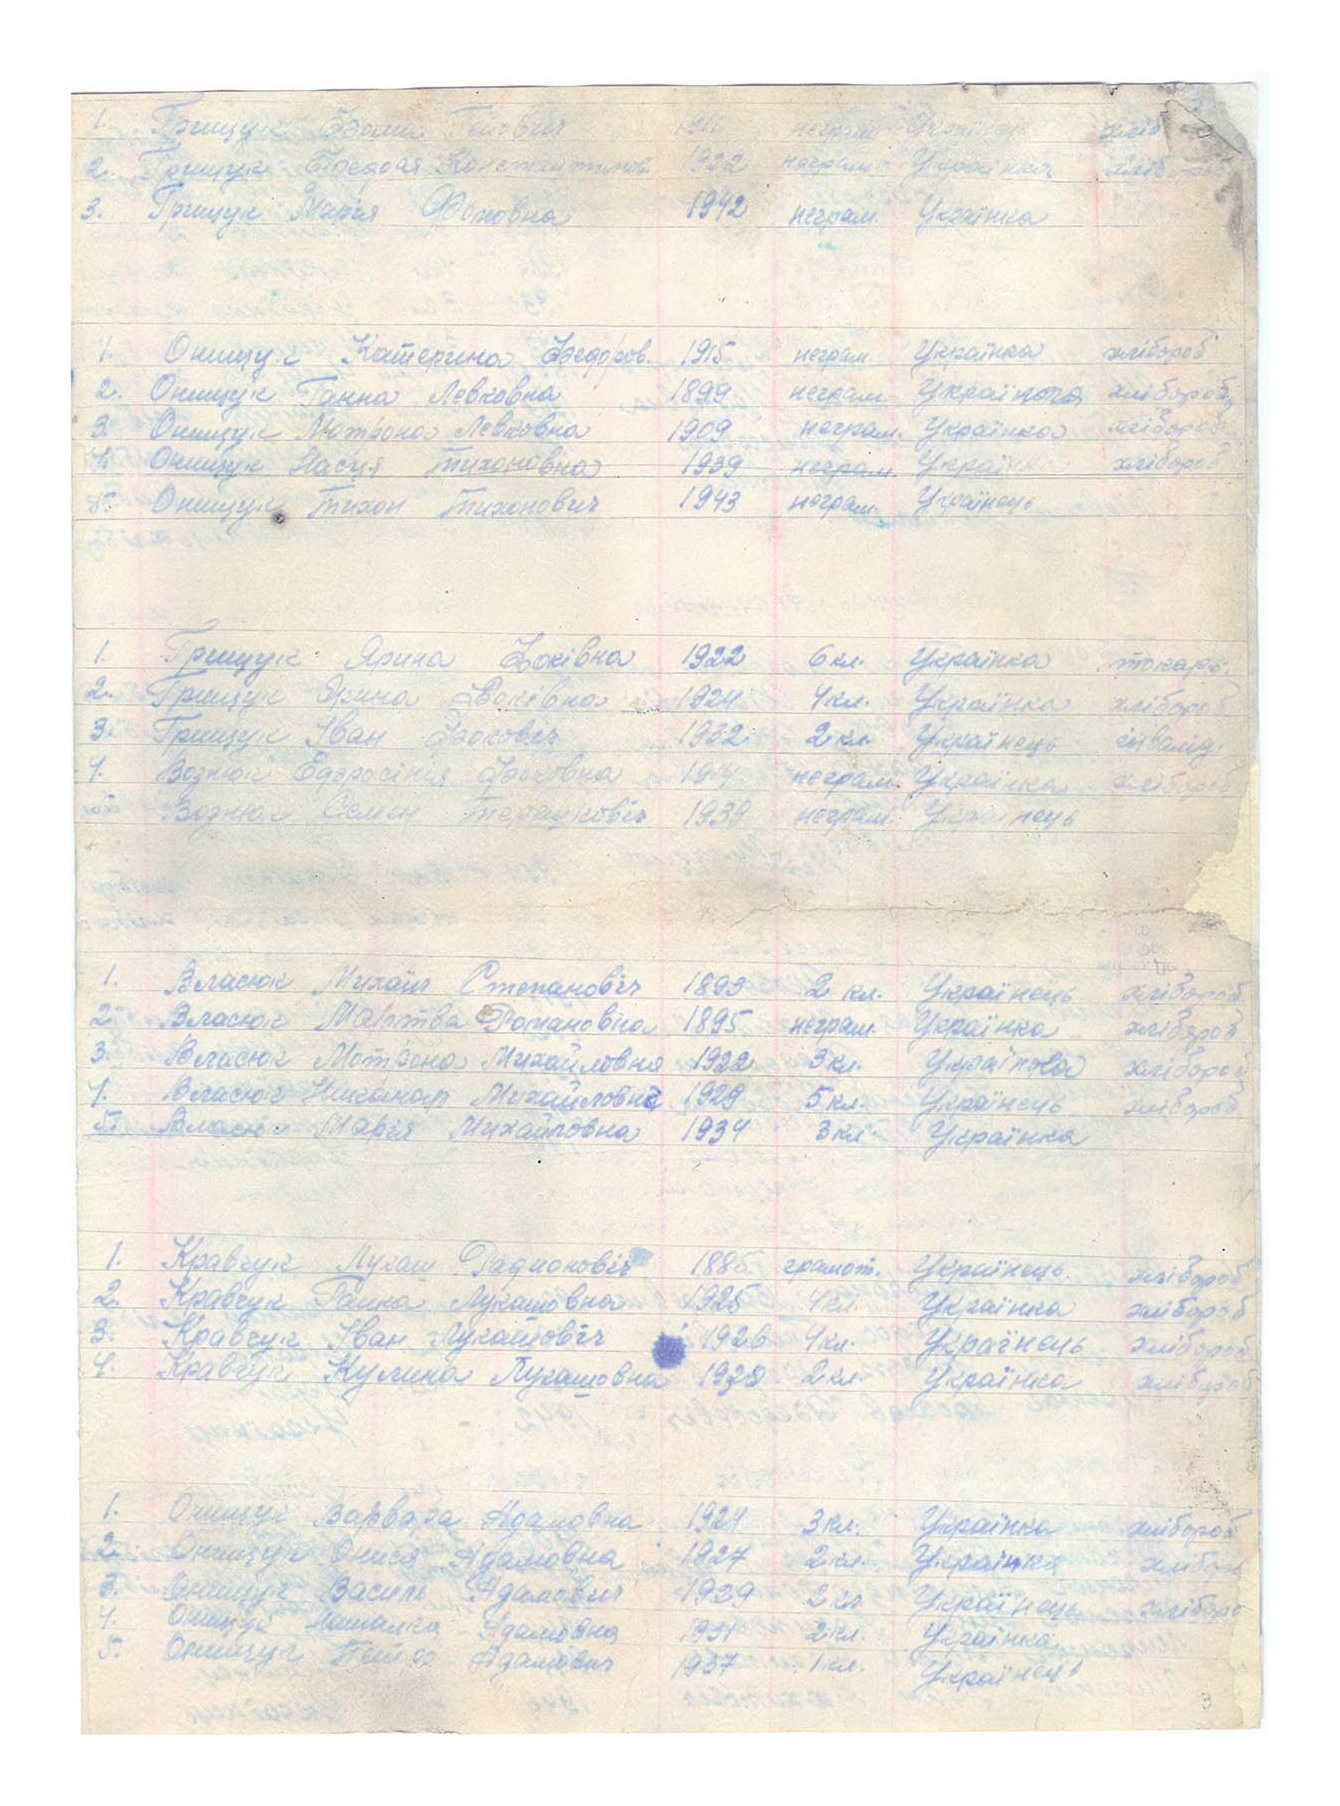 1. Грищук неграм. Українець хліб
2. Грищук Константинов. 1922 неграм. Українка хлібороб
3. Грищук Марія Фомовна 1942 неграм. Українка
1. Онищук Катерина Федоров. 1915 неграм. Українка хлібороб
2. Онищук Ганна Левковна 1899 неграм. Українка хлібороб
3. Онищук Мотрона Левковна 1909 неграм. Українка хлібороб
4. Онищук Насця Тихоновна 1939 неграм. Українка хлібороб
5. Онищук Тихон Тихонович 1943 неграм. Українець
1. Грищук Ярина Фоківна 1922 6 кл. Українка токарь.
2. Грищук Фоківна 1924 4 кл. Українка хлібороб
3. Грищук Іван Фоковіч 1932 2 кл. Українець інвалід.
4. Вознюк Фоковна неграм. Українка хлібороб
5. Вознюк Семен 1939 неграм. Українець
1. Власюк Михаїл Степановіч 1893 2 кл. Українець хлібороб
2. Власюк Романовна 1895 неграм. Українка хлібороб
3. Власюк Мотрона Михайловна 1922 3 кл. Українка хлібороб
4. Власюк Никанор 1929 5 кл. Українець хлібороб
5. Власюк Марія Михайловна 1934 3 кл. Українка
1. Кравчук Лукаш Радионовіч 1885 грамот. Українець хлібороб
2. Кравчук Ганна Лукашовна 1925 4 кл. Українка хлібороб
3. Кравчук Іван Лукашовіч 1926 4 кл. Українець хлібороб
4. Кравчук Кулина Лукашовна 1928 2 кл. Українка хлібороб
1. Онищук Варвара Адамовна 1924 3 кл. Українка хлібороб
2. Онищук Онися Адамовна 1927 2 кл. Українка хлібор
3. Онищук Василь Адамович 1929 2 кл Українець хліборо
4. Онищук Наталка Адамовна 1931 2 кл. Українка
5. Онищук Адамович 1937 1 кл. Українець
3